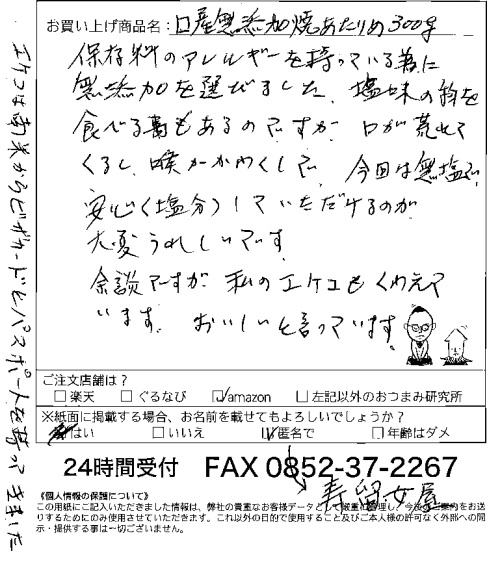 お買い上げ商品名：口産無添加焼あたりめ300g
保存料のアレルギーを持っている為に
無添加を選びました、塩味の物を
食べる事もあるのですが 口が荒れて
くるし、喉がかわくしで、今回は無塩で、
安心(塩分)していただけるのが
大変うれしいです
余談ですが 私のエケコもくわえて
います。おいしいと言っています。
エケコは南米からビザカードとパスポートを持ってきました
ご注文店舗は？
□楽天 □ぐるなび ☑amazon □左記以外のおつまみ研究所
※紙面に掲載する場合、お名前を載せてもよろしいでしょうか？
はい □いいえ ☑匿名で □年齢はダメ
24時間受付 FAX 0852-37-2267
寿留女屋
《個人情報の保護について》
この用紙にご記入いただきました情報は、弊社の貴重なお客様データとして厳重に管理し、今後のご案内をお送
りするためにのみ使用させていただきます。これ以外の目的で使用すること及びご本人様の許可なく外部への開
示・提供する事は一切ございません。